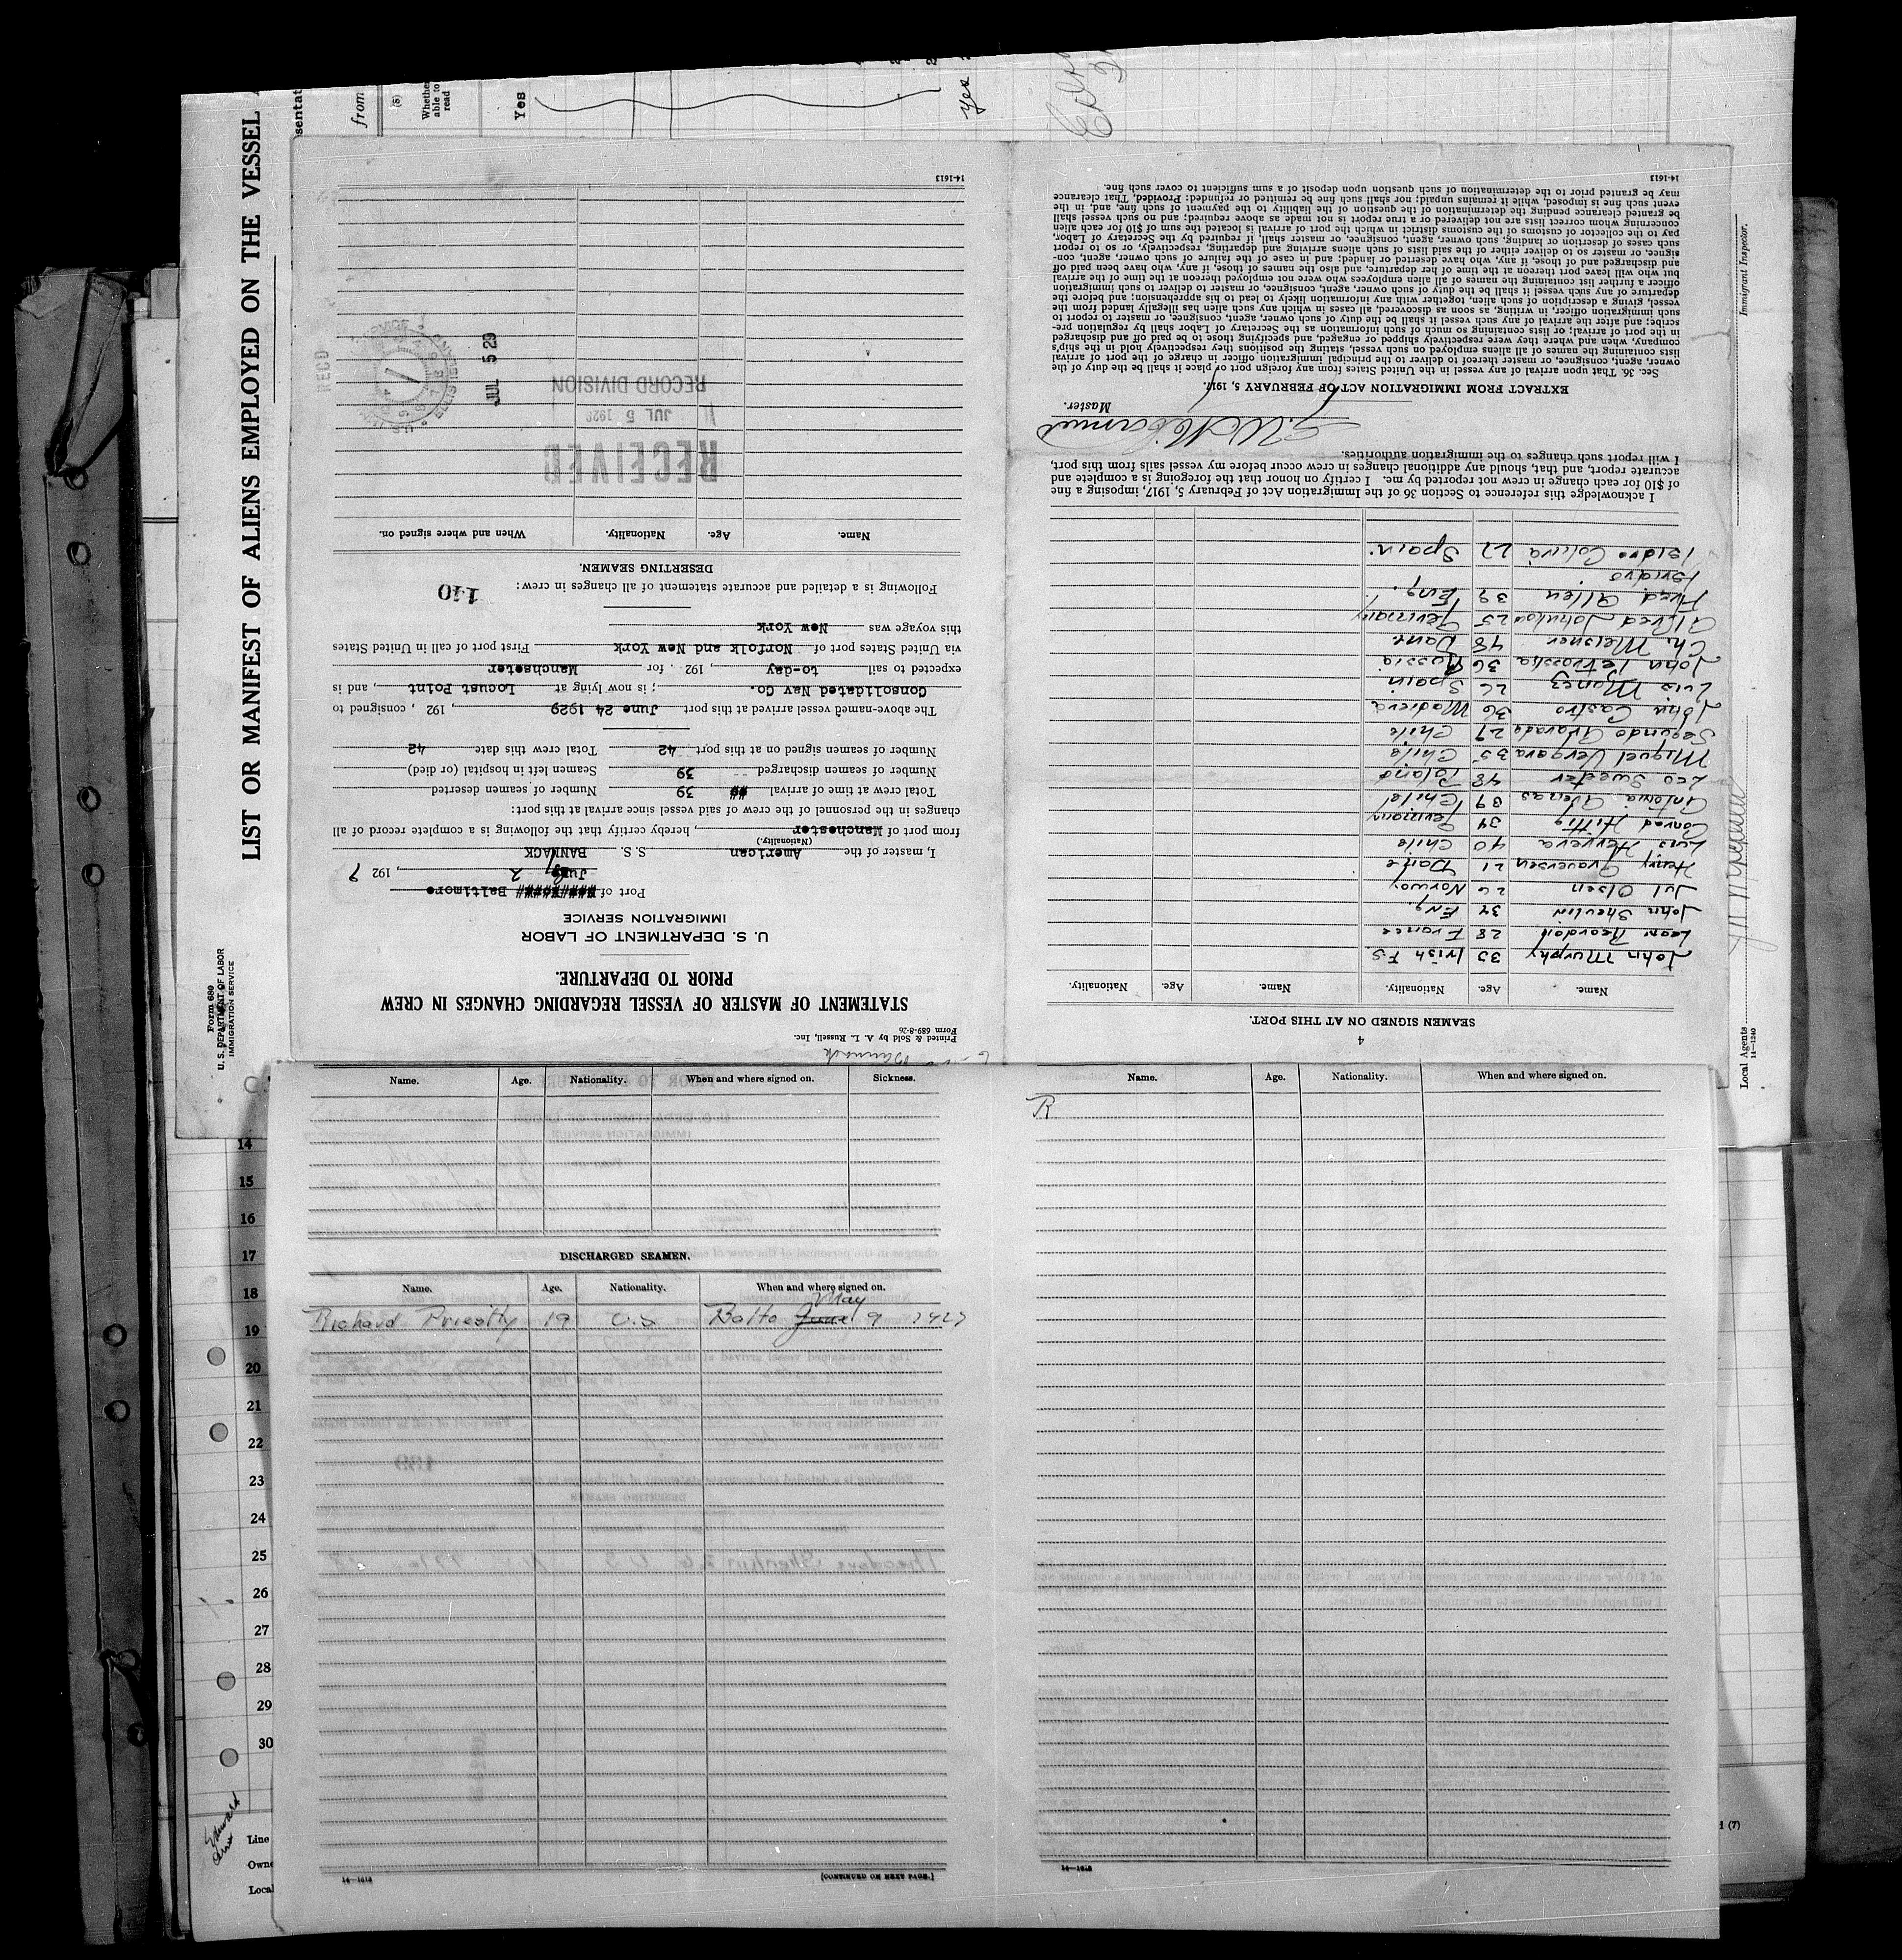 LIST OR MANIFEST OF ALIENS EMPLOYED ON THE VESSEL
Form 680
U. S. DEPARTMENT OF LABOR
IMMIGRATION SERVICE
from
(8)
Whether
able to
read
Yes
Yes
Printed & Sold by A. L. Russell, Inc.
Form 689-8-26
STATEMENT OF MASTER OF VESSEL REGARDING CHANGES IN CREW
PRIOR TO DEPARTURE.
U. S. DEPARTMENT OF LABOR
IMMIGRATION SERVICE
Port of Baltimore
July 2, 192 9
I, master of the American S. S. BANNACK
(Nationality.)
from port of Manchester, hereby certify that the following is a complete record of all
changes in the personnel of the crew of said vessel since arrival at this port:
Total crew at time of arrival 39 Number of seamen deserted
Number of seamen discharged 39 Seamen left in hospital (or died)
Number of seamen signed on at this port 42 Total crew this date 42
The above-named vessel arrived at this port June 24 1929, 192 , consigned to
Consolidated Nav Co. ; is now lying at Locust Point, and is
expected to sail to-day, 192 . for Manchester
via United States port of Norfolk and New York First port of call in United States
this voyage was New York
Following is a detailed and accurate statement of all changes in crew:
110
DESERTING SEAMEN.
Name. Age. Nationality. When and where signed on.
RECEIVED
JUL 5 1929
RECORD DIVISION
JUL 5 29
REC'D
14-1613
4
SEAMEN SIGNED ON AT THIS PORT.
Name. Age. Nationality. Name. Age. Nationality.
John Murphy 33 Irish F S
Leon Reardon 28 France
John Shevlin 34 Eng.
Jul Olsen 26 Norway
Henry Graversen 21 Dane
Luis Herrera 40 Chile
Conrad Hittig 34 Germany
Antonio Arenas 39 Chile
Leo Sweeter 48 Poland
Miguel Vergara 35 Chile
Segundo Alvarado 27 Chile
John Castro 36 Madiera
Luis Manez 26 Spain
John Petrossia 36 Russia
Ch. Meisner 48 Dane
Alfred Johnson 25 Germany
Fred Allen 39 Eng.
Isidro
Isidro Coliva 22 Spain
I acknowledge this reference to Section 36 of the Immigration Act of February 5, 1917, imposing a fine
of $10 for each change in crew not reported by me. I certify on honor that the foregoing is a complete and
accurate report, and that, should any additional changes in crew occur before my vessel sails from this port,
I will report such changes to the immigration authorities.
Master.
EXTRACT FROM IMMIGRATION ACT OF FEBRUARY 5, 1917.
Sec. 36. That upon arrival of any vessel in the United States from any foreign port or place it shall be the duty of the
owner, agent, consignee, or master thereof to deliver to the principal immigration officer in charge of the port of arrival
lists containing the names of all aliens employed on such vessel, stating the positions they respectively hold in the ship's
company, when and where they were respectively shipped or engaged, and specifying those to be paid off and discharged
in the port of arrival; or lists containing so much of such information as the Secretary of Labor shall by regulation pre-
scribe; and after the arrival of any such vessel it shall be the duty of such owner, agent, consignee, or master to report to
such immigration officer, in writing, as soon as discovered, all cases in which any such alien has illegally landed from the
vessel, giving a description of such alien, together with any information likely to lead to his apprehension; and before the
departure of any such vessel it shall be the duty of such owner, agent, consignee, or master to deliver to such immigration
officer a further list containing the names of all alien employees who were not employed thereon at the time of the arrival
but who will leave port thereon at the time of her departure, and also the names of those, if any, who have been paid off
and discharged and of those, if any, who have deserted or landed; and in case of the failure of such owner, agent, con-
signee, or master so to deliver either of the said lists of such aliens arriving and departing, respectively, or so to report
such cases of desertion or landing, such owner, agent, consignee, or master shall, if required by the Secretary of Labor,
pay to the collector of customs of the customs district in which the port of arrival is located the sum of $10 for each alien
concerning whom correct lists are not delivered or a true report is not made as above required; and no such vessel shall
be granted clearance pending the determination of the question of the liability to the payment of such fine, and, in the
event such fine is imposed, while it remains unpaid; nor shall such fine be remitted or refunded: Provided, That clearance
may be granted prior to the determination of such question upon deposit of a sum sufficient to cover such fine.
14-1613
Immigrant Inspector.
Local Agents
14-1240
Bannack
Name. Age. Nationality. When and where signed on. Sickness.
DISCHARGED SEAMEN.
Name. Age. Nationality. When and where signed on.
May
Richard Priestly 19 U.S Balto June 9 1927
14—1613
[CONTINUED ON NEXT PAGE.]
Name. Age. Nationality. When and where signed on.
R
14—1613
14
15
16
17
18
19
20
21
22
23
24
25
26
27
28
29
30
Edward
Line
Owne
Local
(7)